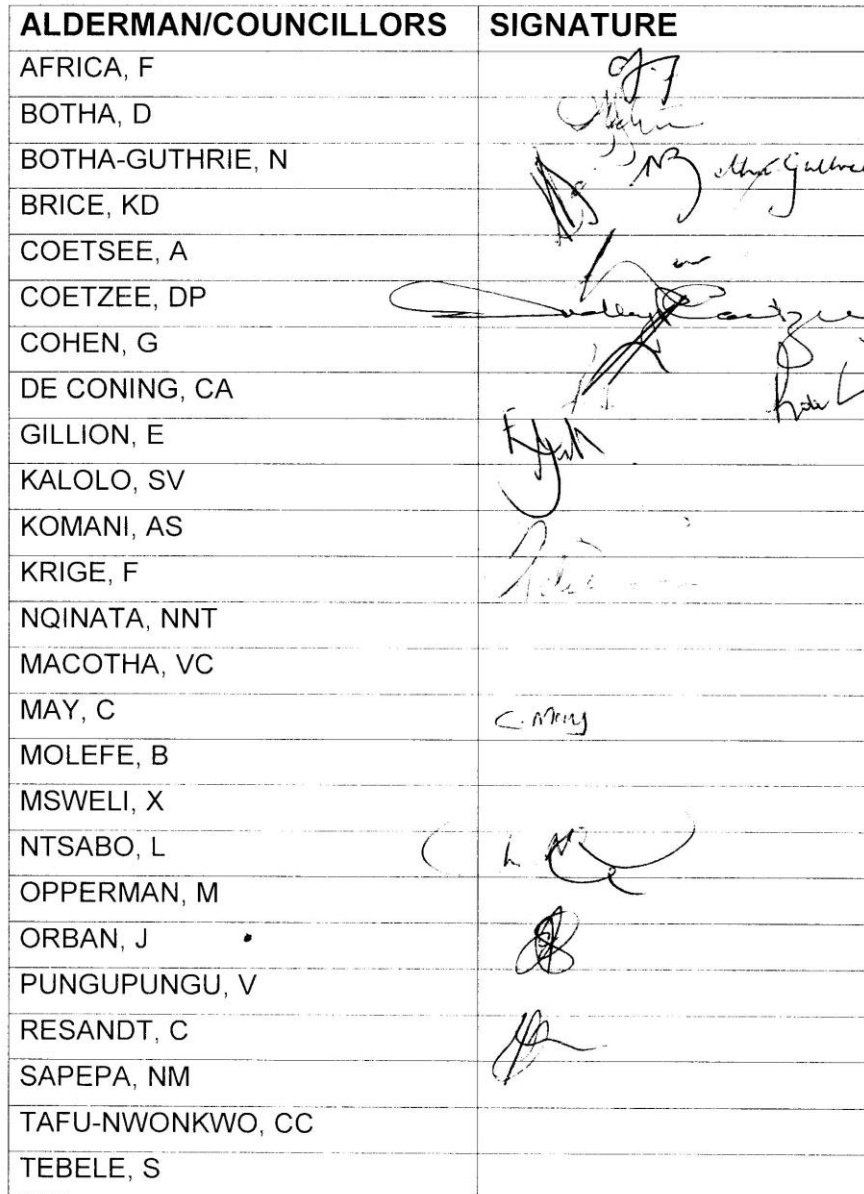 ALDERMAN/COUNCILLORS SIGNATURE
AFRICA, F
BOTHA, D
BOTHA-GUTHRIE, N
BRICE, KD
COETSEE, A
COETZEE, DP
COHEN, G
DE CONING, CA
GILLION, E
KALOLO, SV
KOMANI, AS
KRIGE, F
NQINATA, NNT
MACOTHA, VC
MAY, C C. May
MOLEFE, B
MSWELI, X
NTSABO, L
OPPERMAN, M
ORBAN, J
PUNGUPUNGU, V
RESANDT, C
SAPEPA, NM
TAFU-NWONKWO, CC
TEBELE, S